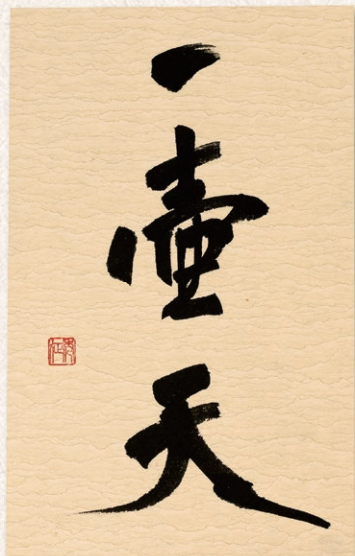 一壺天